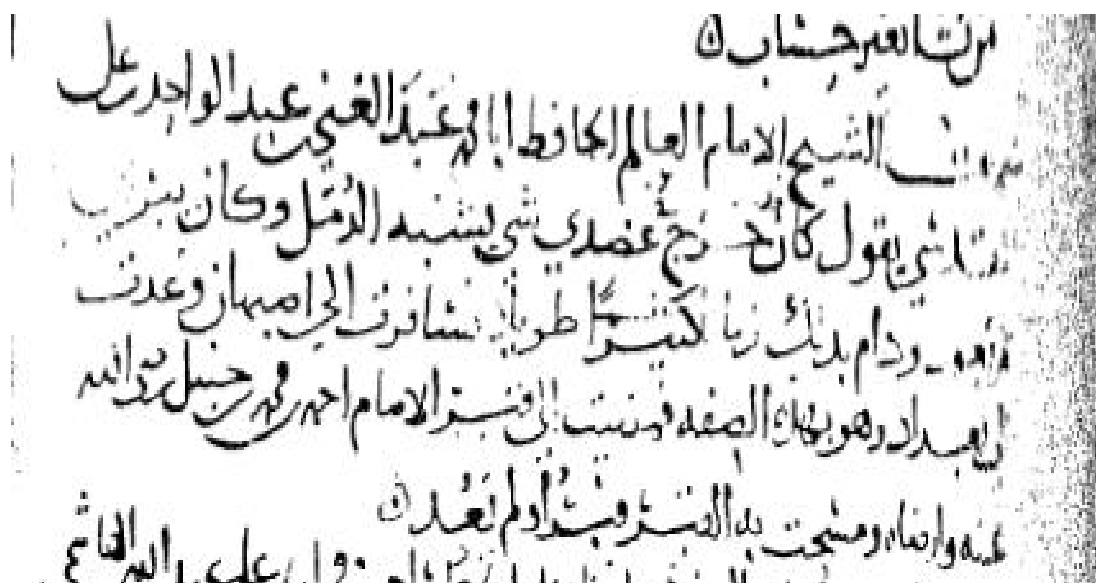 بغير حساب
سمعت الشيخ الامام العالم الحافظ ابا محمد عبد الغني بن عبد الواحد بن علي
المقدسي يقول كان خرج في عضدي شي يشبه الدمل وكان
ودام بذلك زمانا كثيرا طويلا فسافرت الى اصبهان وعدت
الى بغداد وهو بهذه الصفه فمضيت الى قبر الامام احمد بن محمد بن حنبل رضي الله
عنه وارضاه ومسحت به القبر فبرأ ولم يعد